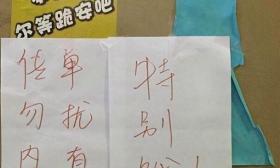 尔等跪安吧
单
勿扰
内有
特
别